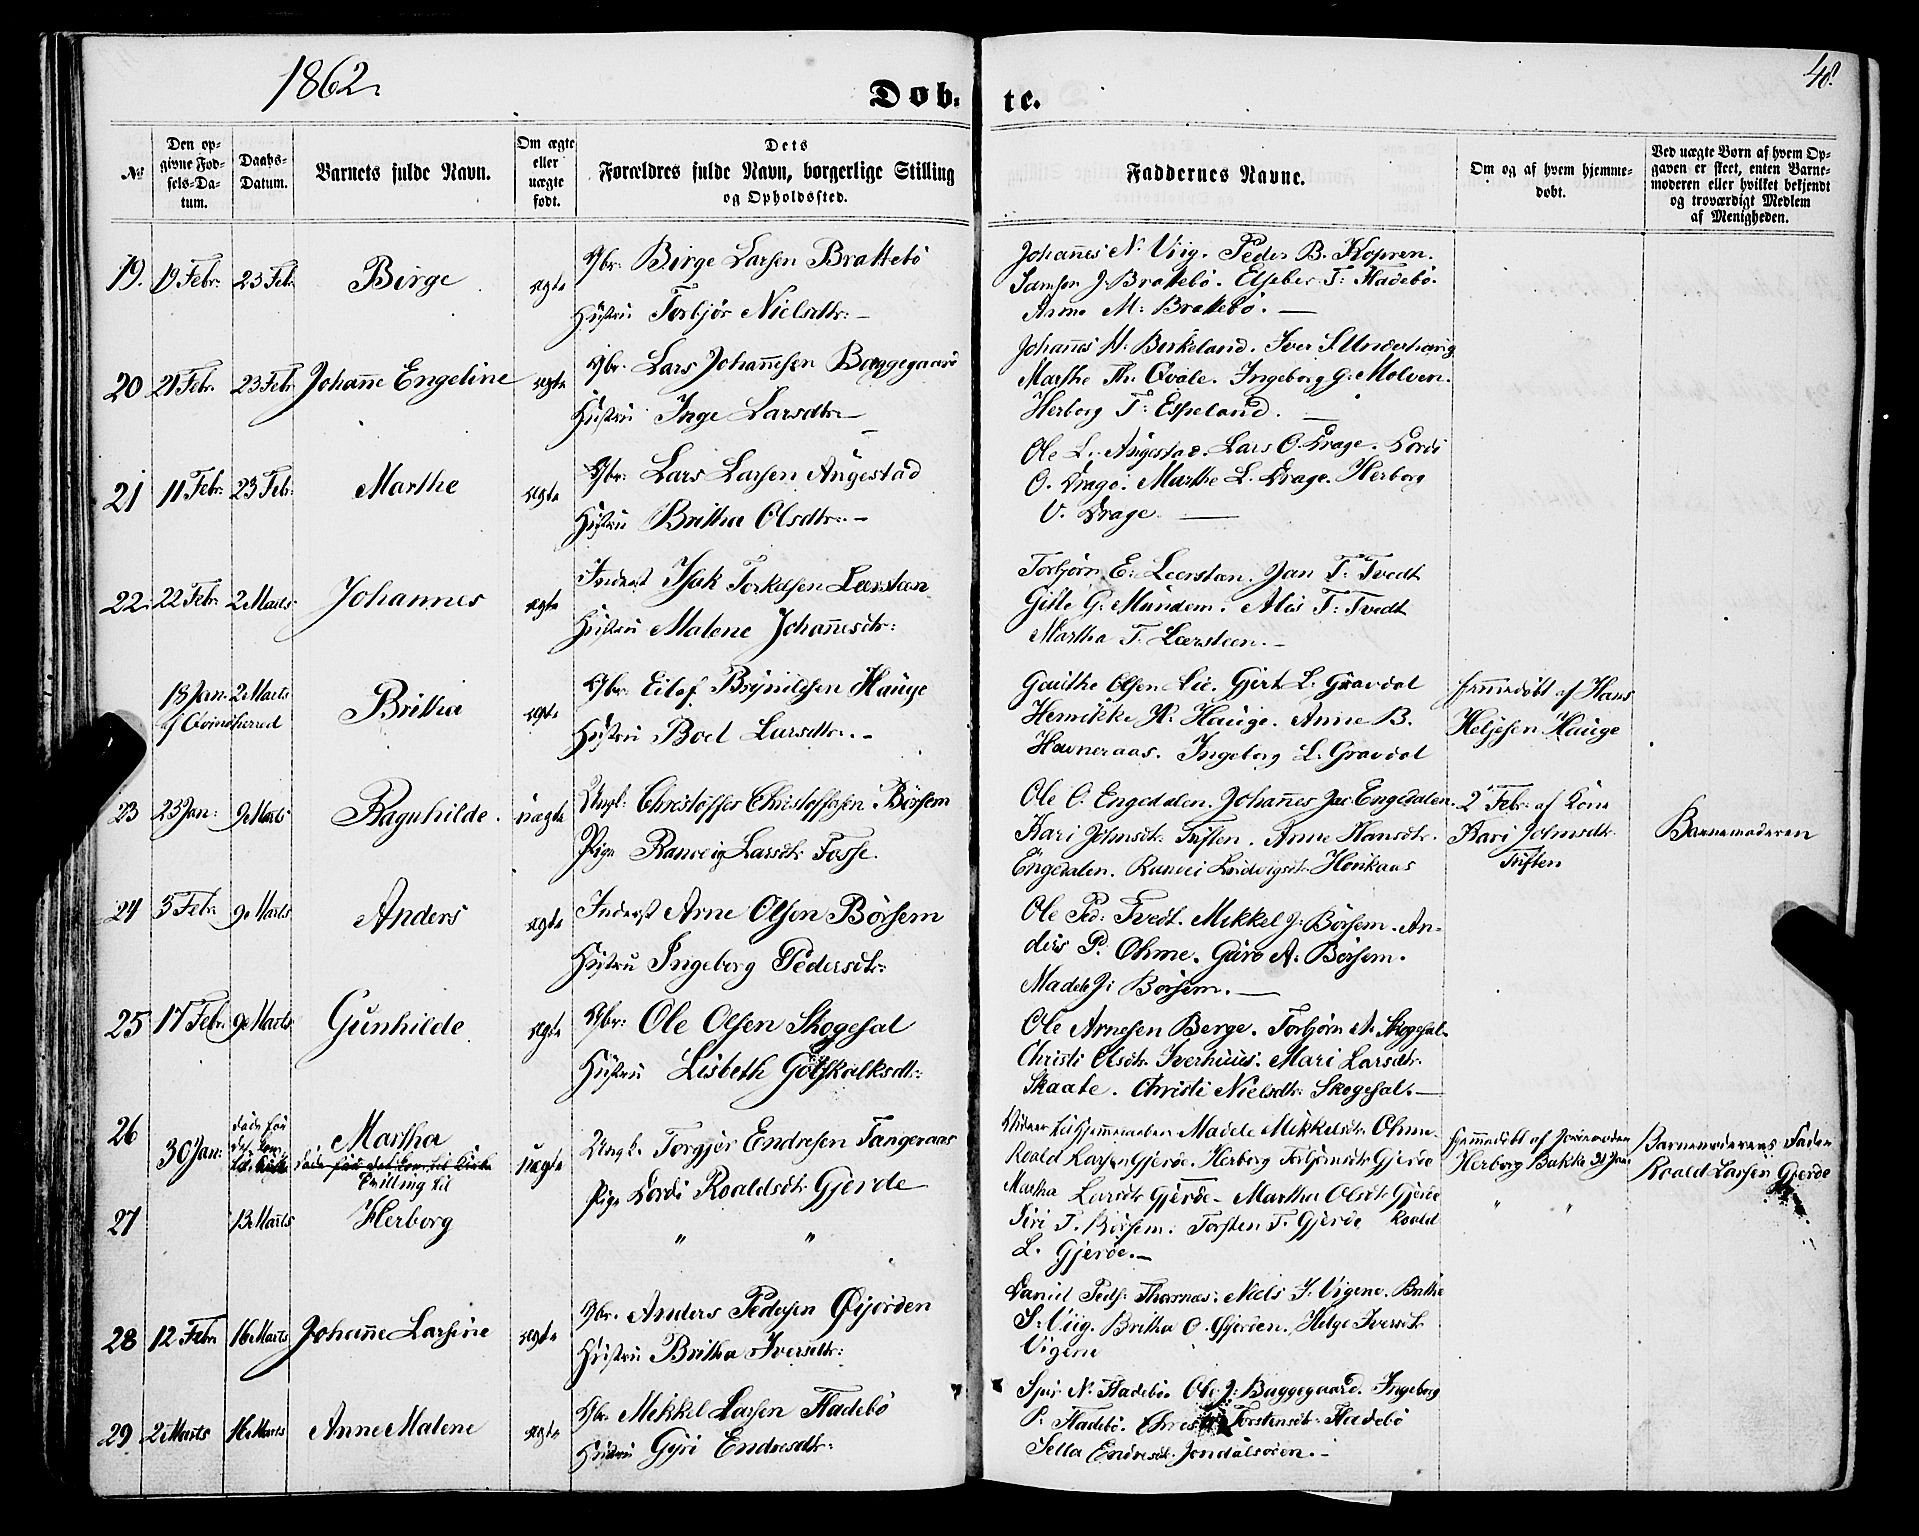 1862.
48.
Døb. te.
№
Den op-
givne Fød-
sels-Da-
tum.
Daabs-
Datum.
Barnets fulde Navn.
Om ægte
eller
uægte
født.
Dets
Forældres fulde Navn, borgerlige Stilling
og Opholdssted.
Faddernes Navne.
Om og af hvem hjemme-
døbt.
Ved uægte Børn af hvem Op-
gaven er skeet, enten Barne-
moderen eller hvilket bekjendt
og troværdigt Medlem
af Menigheden.
19. 19 Febr. 23 Feb: Birge ægte
Gbr: Birge Larsen Brattebö
Hustru Torbjör Nielsdtr:
Johannes N. Viig. Peder B. Kopren.
Samson J. Brattebö. Elseber T: Fladebö.
Anna M: Brattebö.
20 21 Febr. 23 Feb. Johanne Engeline ægte
Gbr. Lars Johannesen Baggegaard
Hustru Inge Larsdtr
Johannes H. Birkeland. Iver S. Underhaug
Marthe Th: Qvale. Ingeborg G: Molven.
Herborg T: Espeland.
21 11 Febr: 23 Feb: Marthe ægte
Gbr: Lars Larsen Augestad
Hustru Britha Olsdtr:
Ole L. Augestad. Lars O. Drage. Dordi
O. Drage. Marthe L. Drage. Herborg
V. Drage.
22. 22 Feb. 2 Marts Johannes ægte
Inderst Isak Torkelsen Leersteen
Hustru Malene Johannesdtr:
Torbjörn E: Leersteen. Jan T: Tvedt
Gitle G. Mundem. Alis T: Tvedt
Martha T. Leersteen.
18 Jan: 2 Marts
i Qvindherred Britha ægte
Gbr: Eilef Brynildsen Hauge
Hustru Boel Larsdtr.
Gauthe Olsen Lie. Gjert L. Gravdal
Henrikke H: Hauge. Anne B.
Havneraas. Ingeborg L. Gravdal
hjemmedöbt af Hans
Heljesen Hauge
23 25 Jan: 9 Marts Ragnhilde. uægte
Ungk: Christoffer Christoffersen Börsem
Pige Ranveig Larsdtr Fosse.
Ole O. Engedalen. Johannes Jac: Engedalen.
Kari Johnsdtr: Tuften. Anne Hansdtr.
Engedalen. Ranvei Ludvigsdtr Honkaas
2 Febr. af Kone
Kari Johnsdtr
Tuften
Barnemoderen
24 3 Feb: 9 Marts Anders ægte
Inderst Arne Olsen Börsem
Hustru Ingeborg Pedersdtr:
Ole Ped: Tvedt. Mikkel J: Börsem. An-
ders P. Ohme. Guro A. Börsem.
Madele J: Börsem.
25 17 Feb. 9 Marts Gunhilde ægte
Gbr: Ole Olsen Skogesal
Hustru Lisbeth Gotskalksdtr:
Ole Arnesen Berge. Torbjörn A. Skogesal
Christi Olsdtr: Iverhuus. Mari Larsdtr.
Skaate. Christi Nielsdtr: Skogesal.
26 30 Jan: döde för
det kom
til Kirke Martha
döde för det kom til Kirke
Tvilling til uægte
Ungk. Torgjer Endresen Tangeraas
Pige Dordi Roaldsdtr. Gjerde
Madele Mikkelsdtr: Ohme
Roald Larsen Gjerde. Herborg Torbjörnsdtr Gjerde
Martha Larsdtr Gjerde. Martha Olsdtr. Gjerde
hjemmedöbt af Jordemoder
Herborg Bakke 31 Jan:
Barnemoderens Fader
Roald Larsen Gjerde
27 13 Marts Herborg
" "
Siri T. Börsem. Torsten T. Gjerde Roald
L. Gjerde.
" "
28 12 Febr 16 Marts Johanne Larsine ægte
Gbr. Anders Pedersen Gjerden
Hustru Britha Iversdtr:
Daniel Peds: Tharnæs. Niels J: Vigene. Britha
S: Viig. Britha O. Gjerden. Helge Iversdtr
Vigene
29 2 Marts 16 Marts Anne Malene ægte
Gbr. Mikkel Larsen Fladebö
Hustru Gyri Endresdtr:
N. Fladebö. Ole J: Baggegaard. Ingeborg
P. Fladebö. Torstensdtr: Fladebö
Sella Endresdtr. Jondalsören.